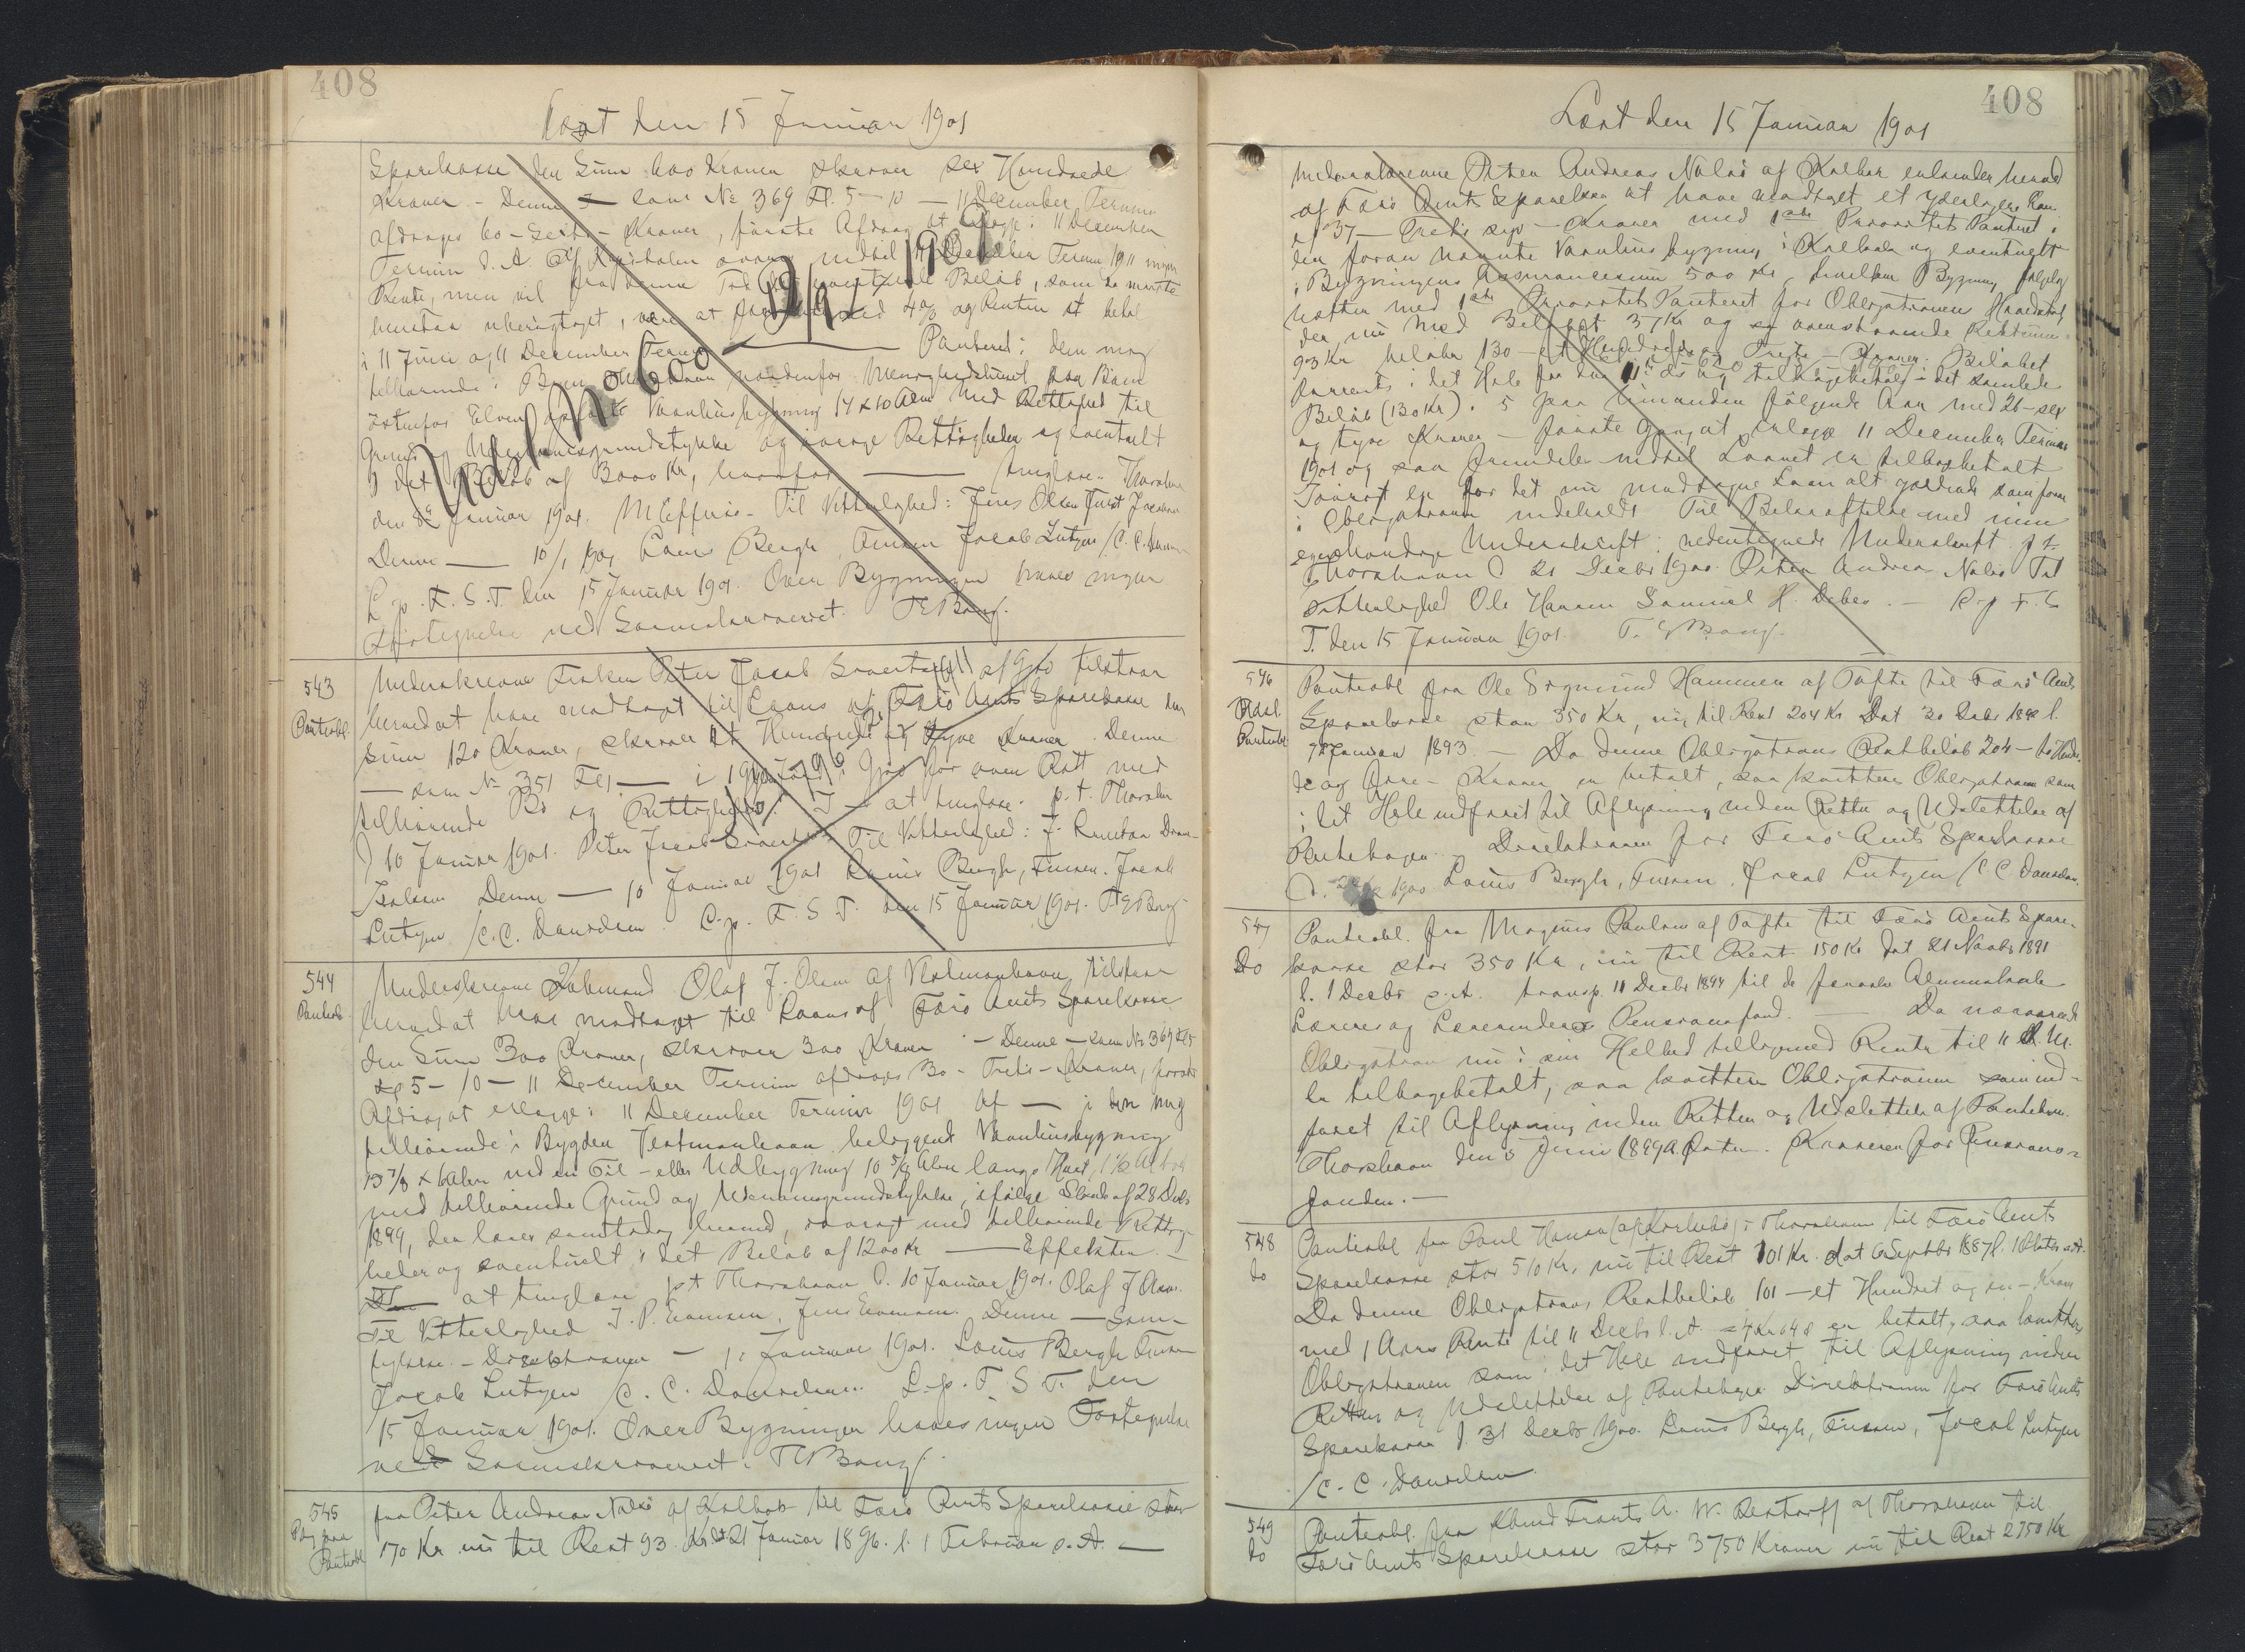 408
Læst den 15 Januar 1901
Sparekasse den Sum 600 Kroner skriver sex Hundrede
Kroner - Denne — som No 369 Fl. 5 - 10 — 11 December Termin
afdrages 60 - Kroner, første Afdrag at erlægge i 11 December
Termin d. A. af Kapitalen svares indtil 11 December Termin 1911 ingen
Rente, men vil fra denne Tid det eventuelle Beløb, som da maatte
henstaa ubetalt, være at med 4% og Renten at betale
i 11 Juni og 11 December Termin — Panteret i den mig
tilhørende i Byen Thorshavn nordenfor Menighedshuset paa
østenfor Elven opførte Vaaningshusbygning 14 x 10 Alen med Rettighed til
Grund og Udenomsgrundstykke og øvrige Rettigheder og eventuelt
i det Beløb af 3000 Kr, hvorfor — tinglæse. Thorshavn
den 8de Januar 1901. M. Til Vitterlighed: Jens Olsen Joensen
Denne — 10/1 1901 Louis Bergh, Finsen Jacob Lützen /C. C. Danielsen
L. p. F. S. T. den 15 Januar 1901. Over Bygningen haves ingen
Fortegnelse ved Sorenskriveriet. T. E. Bang.
543
Panteobl.
Underskrevne Fisker Peter Jacob af Gjov tilstaar
herved at have modtaget til Laans af Færø Amts Sparekasse den
Sum 120 Kroner, skriver et Hundrede og tyve Kroner. Denne
— som No 351 Fl. 1 — i Jord i Gjov for over Ret med
tilliggende Bo og Rettigheder. I — at tinglæse. p. t. Thorshavn
d 10 Januar 1901. Peter Jacob Til Vitterlighed: J.
Denne — 10 Januar 1901 Louis Bergh, Finsen. Jacob
Lützen /C. C. Danielsen. L. p. F. S. T. den 15 Januar 1901. T. E. Bang.
544
Panteobl.
Underskrevne Købmand Olaf J. Olsen af Vestmanhavn, tilstaar
herved at have modtaget til Laans af Færø Amts Sparekasse
den Sum 300 Kroner, skriver 300 Kroner. - Denne - som No 369 Fl. 5
5 - 10 — 11 December Termin afdrages 30 - Tretis - Kroner, første
Afdrag at erlægge i 11 December Termin 1901 Af — i den mig
tilhørende i Bygden Vestmanhavn beliggende Vaaningshusbygning
13 7/8 x 6 Alen med en Til - eller Udbygning 10 5/8 Alen lang
med tilhørende Grund og Udenomsgrundstykke, ifølge Skøde af 28 Decbr
1899, der læses samtidig hermed, iøvrigt med tilhørende Rettig-
heder og eventuelt i det Beløb af 1200 Kr — Effekten. —
at tinglæse p. t. Thorshavn d. 10 Januar 1901. Olaf J Olsen.
Til Vitterlighed J. P. Denne — Sam-
tykkes. - Direktionen — Januar 1901. Louis Bergh Finsen
Jacob Lützen /C. C. Danielsen. L. p. F. S. T. den
15 Januar 1901. Over Bygningen haves ingen Fortegnelse
ved Sorenskriveriet. T. E. Bang.
545
Paategn. paa
Panteobl.
fra Peter Andreas Nolsø af Kalbak til Færø Amts Sparekasse stor
170 Kr nu til Rest 93 Kr dat 21 Januar 1896. l. 1 Februar s. A. —
408
Læst den 15 Januar 1901
Underskrevne Peter Andreas Nolsø af Kalbak erkender herved
af Færø Amts Sparekasse at have modtaget et yderligere Laan
37 — Tretis syv - Kroner med 1ste Prioritets Panteret i
den foran nævnte Vaaningshusbygning i Kalbak og eventuelt
i Bygningens Assurancesum 500 Kr, hvilken Bygning følgelig
hæfter med 1ste Prioritets Panteret for Obligationens Hovedstol
der nu med Beløbet 37 Kr og ovenstaaende Restsum
93 Kr beløber 130 — et Hundrede og Tretis — Kroner. Beløbet
forrentes i det Hele fra den 11 og tilbagebetales det samlede
Beløb (130 Kr) i 5 paa hinanden følgende Aar med 26 - sex
og tyve Kroner — første Gang at erlægge 11 December Termin
1901 og saa fremdeles indtil Laanet er tilbagebetalt
Iøvrigt er for det nu modtagne Laan alt gældende som foran
i Obligationen indeholdt Til Bekræftelse med min
egenhændige Underskrift: nedentegnede Underskrift p t
Thorshavn d 21 Decbr 1900. Peter Andreas Nolsø Til
Vitterlighed Ole Hansen Samuel H. Debes. — L. p F. S
T. den 15 Januar 1901. T. E Bang.
546
Udsl.
Panteobl
Panteobl fra Ole Sigmund Hammer af Tofte til Færø Amts
Sparekasse stor 350 Kr, nu til Rest 204 Kr Dat 30 1892 l.
Januar 1893. — Da denne Obligations Restbeløb 204 — to Hundre-
de og fire - Kroner er betalt, saa kvitteres Obligationen som
i det Hele indfriet til Aflysning inden Retten og Udslettelse af
Pantebogen. Direktionen for Færø Amts Sparekasse
1900 Louis Bergh, Finsen. Jacob Lützen /C. C. Danielsen.
547
Do
Panteobl. fra Magnus Poulsen af Tofte til Færø Amts Spare-
kasse stor 350 Kr, nu til Rest 150 Kr dat 21 Novbr 1891
l. 1 Decbr s. A. transp. 11 Decbr 1894 til de færøske Almueskole
Læreres og Lærerinders Pensionsfond. — Da nærværende
Obligation nu i sin Helhed tilligemed Renter til 11 d. M.
er tilbagebetalt, saa kvitteres Obligationen som ind-
friet til Aflysning inden Retten og Udslettelse af Pantebogen.
Thorshavn den 5 Juni 1899 Kasserer for Pensions-
fonden. —
548
Do
Panteobl fra Poul Hansen i Thorshavn til Færø Amts
Sparekasse stor 510 Kr. nu til Rest 101 Kr. dat 6 Septbr 1887 l. 1 Oktober s. A.
Da denne Obligations Restbeløb 101 — et Hundrede og en - Krone
med 1 Aars Rente til 11 Decbr d. A. = 4 Kr 04 Ø er betalt, saa kvitteres
Obligationen som i det Hele indfriet til Aflysning inden
Retten og Udslettelse af Pantebogen Direktionen for Færø Amts
Sparekasse d 31 Decbr 1900. Louis Bergh, Finsen, Jacob Lützen
/C. C. Danielsen
549
Do
Panteobl. fra Kbmd Frants A. W. Restorff af Thorshavn til
Færø Amts Sparekasse stor 3750 Kroner nu til Rest 2750 Kr